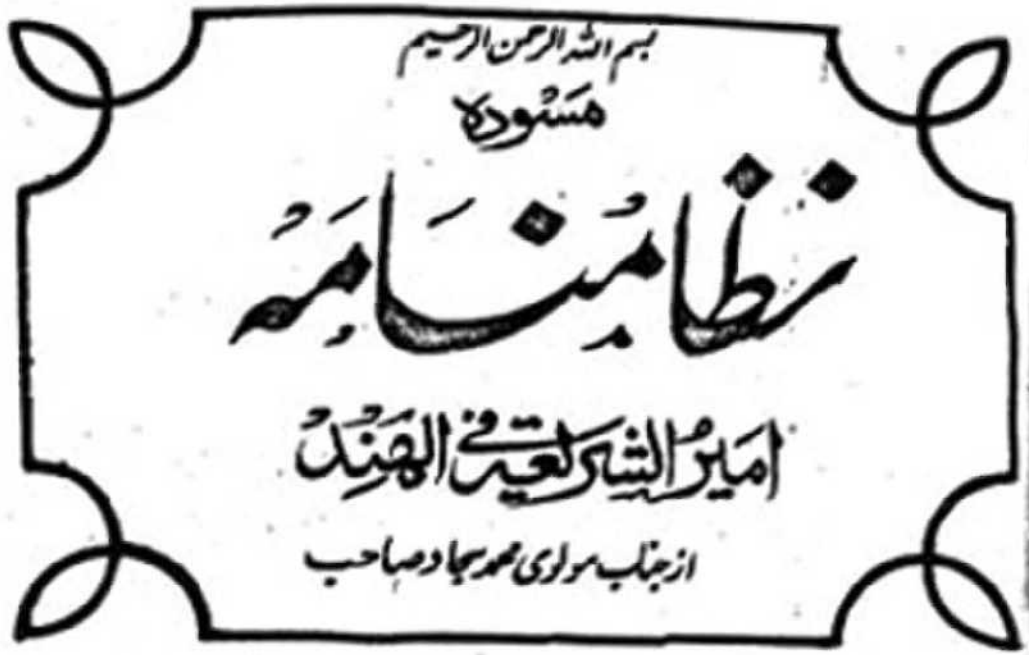 بسم اللہ الرحمن الرحیم
مسَوّدہ
نظامنامَہ
امیرُ الشریعۃ فی الہِنْد
از جناب مولوی محمد سجاد صاحب